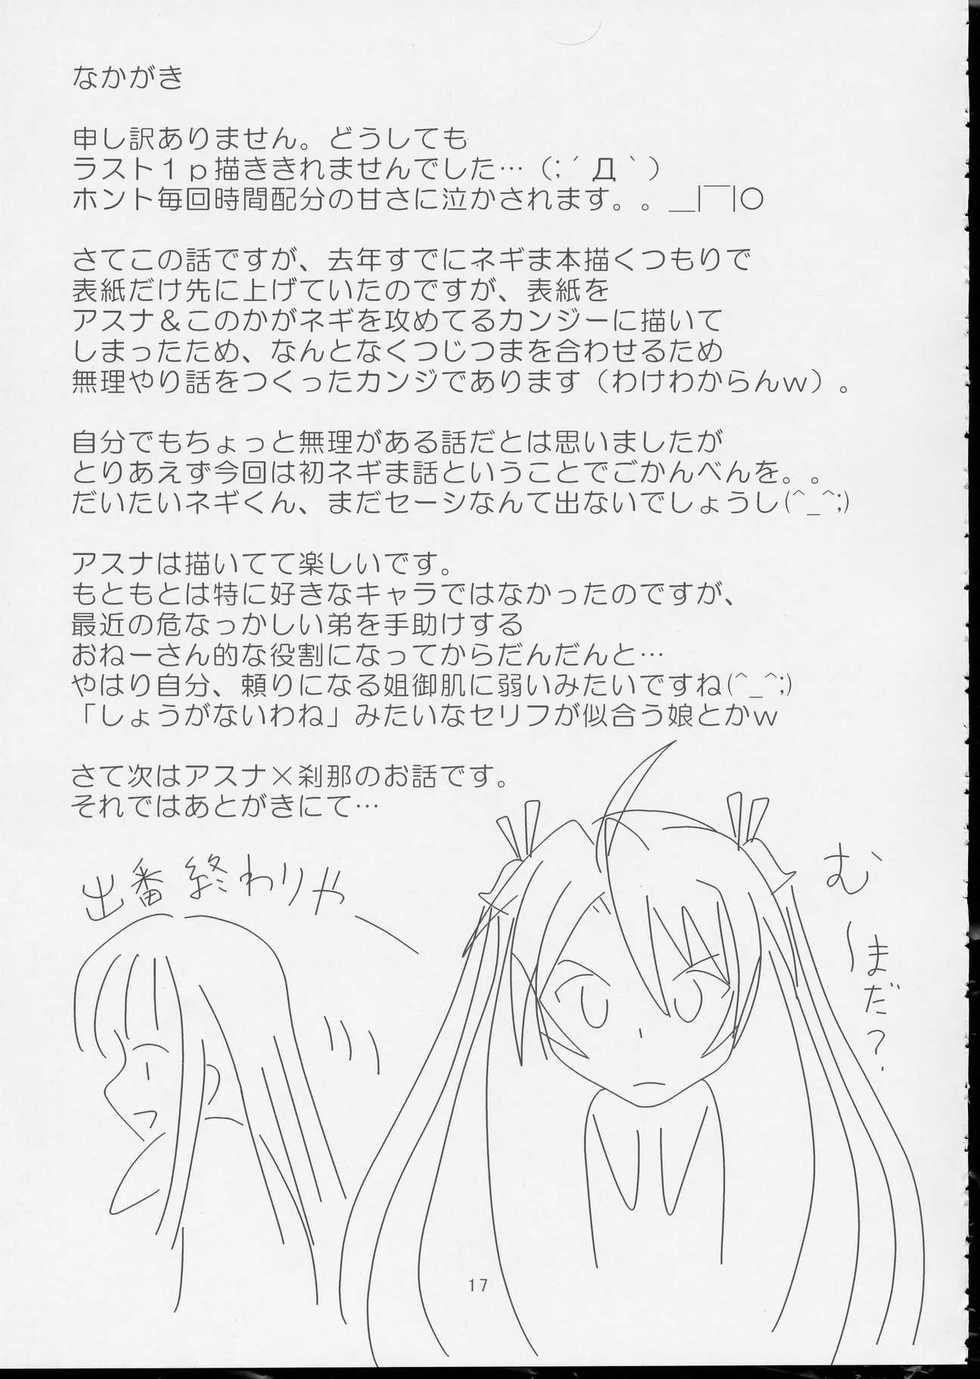 なかがき
申し訳ありません。どうしても
ラスト１ｐ描ききれませんでした…（；´Д｀）
ホント毎回時間配分の甘さに泣かされます。。＿|￣|○
さてこの話ですが、去年すでにネギま本描くつもりで
表紙だけ先に上げていたのですが、表紙を
しまったため、なんとなくつじつまを合わせるため
無理やり話をつくったカンジであります（わけわからんｗ）。
自分でもちょっと無理がある話だとは思いましたが
とりあえず今回は初ネギま話ということでごかんべんを。。
アスナは描いてて楽しいです。
もともとは特に好きなキャラではなかったのですが、
最近の危なっかしい弟を手助けする
おねーさん的な役割になってからだんだんと…
やはり自分、頼りになる姐御肌に弱いみたいですね(^_^;)
「しょうがないわね」みたいなセリフが似合う娘とかｗ
さて次はアスナ×刹那のお話です。
それではあとがきにて…
出番終わりや
む〜まだ？
17